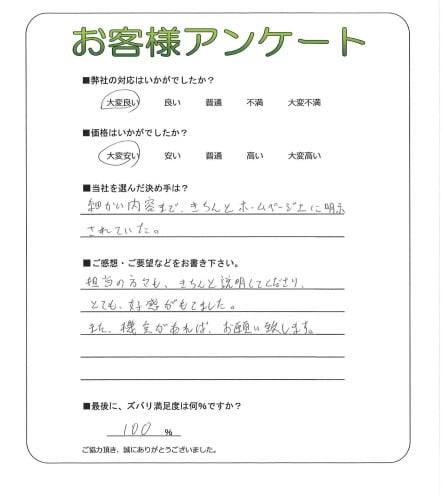 お客様アンケート
■弊社の対応はいかがでしたか？
大変良い 良い 普通 不満 大変不満
■価格はいかがでしたか？
大変安い 安い 普通 高い 大変高い
■当社を選んだ決め手は？
細かい内容まで、きちんとホームページ上に明示
されていた。
■ご感想・ご要望などをお書き下さい。
担当の方も、きちんと説明してくださり、
とても、好感がもてました。
また、機会があれば、お願い致します。
■最後に、ズバリ満足度は何%ですか？
100 %
ご協力頂き、誠にありがとうございました。